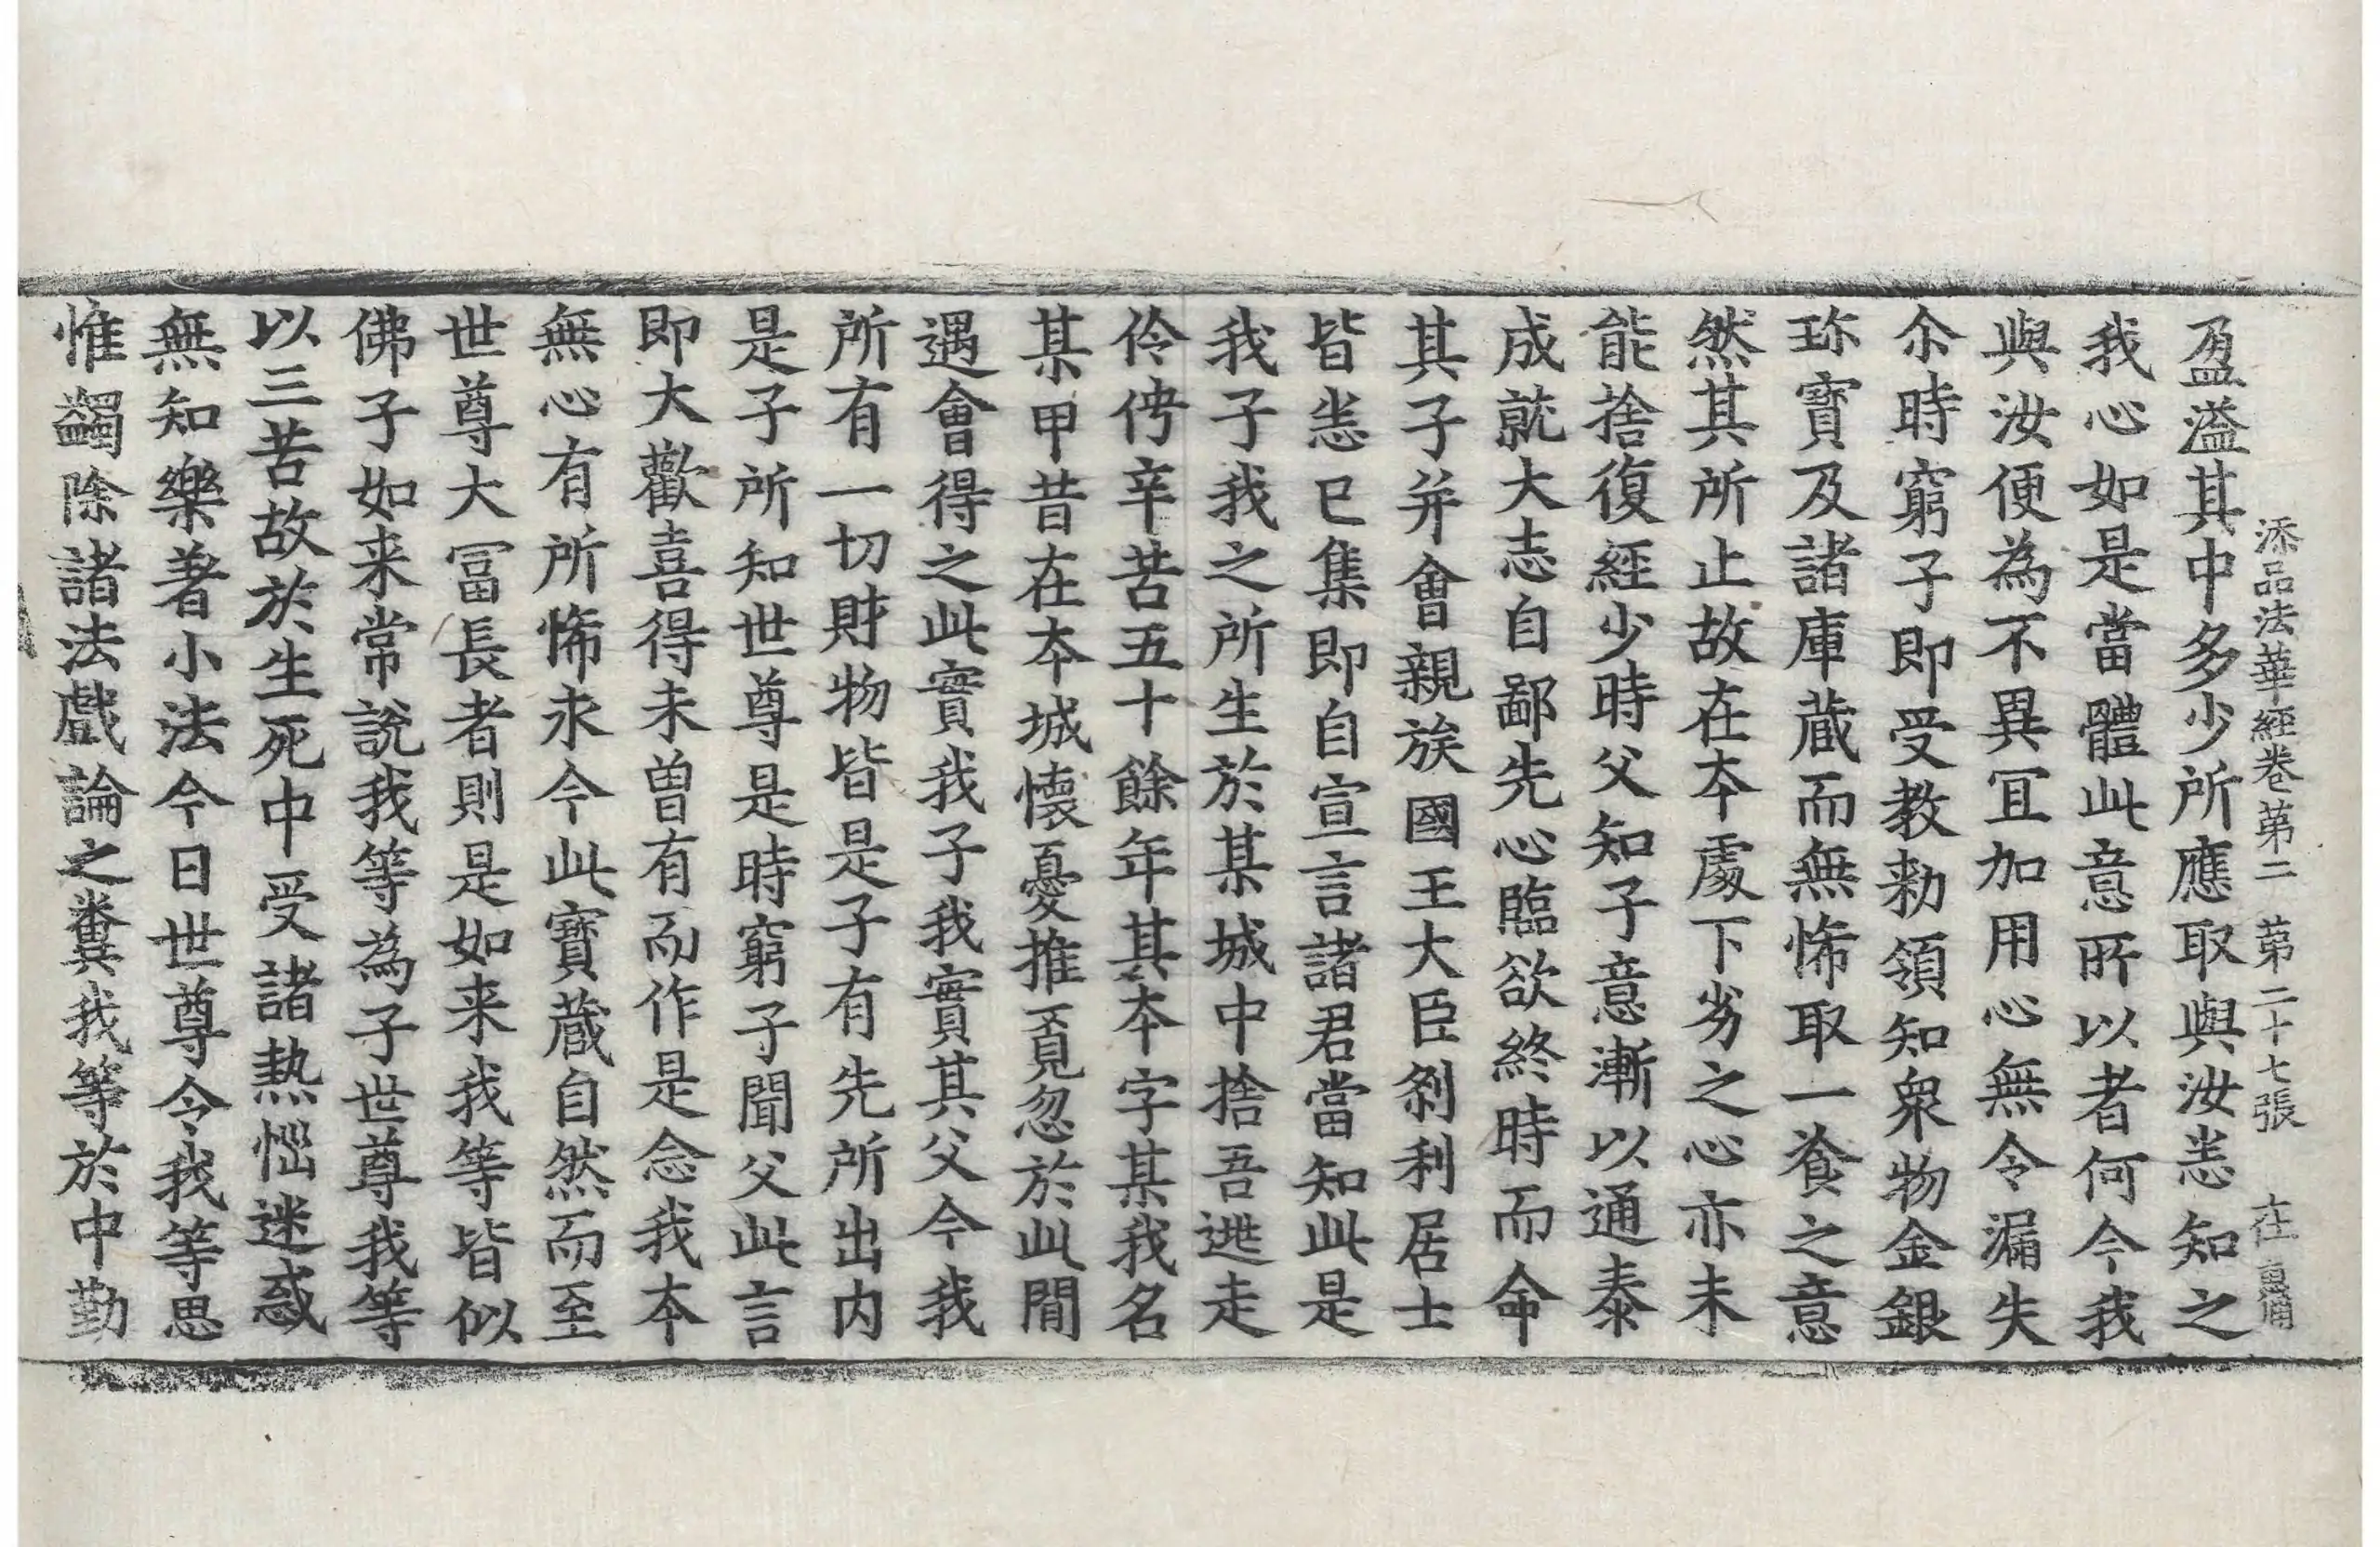 添品法華經卷第二 第二十七張 在
盈溢其中多少所應取與汝悉知之
我心如是當體此意所以者何今我
與汝便為不異冝加用心無令漏失
尒時窮子即受教勑領知衆物金銀
珎寶及諸庫蔵而無悕取一飡之意
然其所止故在本處下劣之心亦未
能捨復經少時父知子意漸以通泰
成就大志自鄙先心臨欲終時而命
其子并會親族國王大臣剎利居士
皆悉已集即自宣言諸君當知此是
我子我之所生於某城中捨吾逃走
伶俜辛苦五十餘年其本字某我名
某甲昔在本城懷憂推覓忽於此間
遇會得之此實我子我實其父今我
所有一切財物皆是子有先所出内
是子所知世尊是時窮子聞父此言
即大歡喜得未曽有而作是念我本
無心有所悕求今此寶蔵自然而至
世尊大冨長者則是如来我等皆似
佛子如来常說我等為子世尊我等
以三苦故於生死中受諸熱惱迷惑
無知樂著小法今日世尊令我等思
惟蠲除諸法戲論之糞我等於中勤